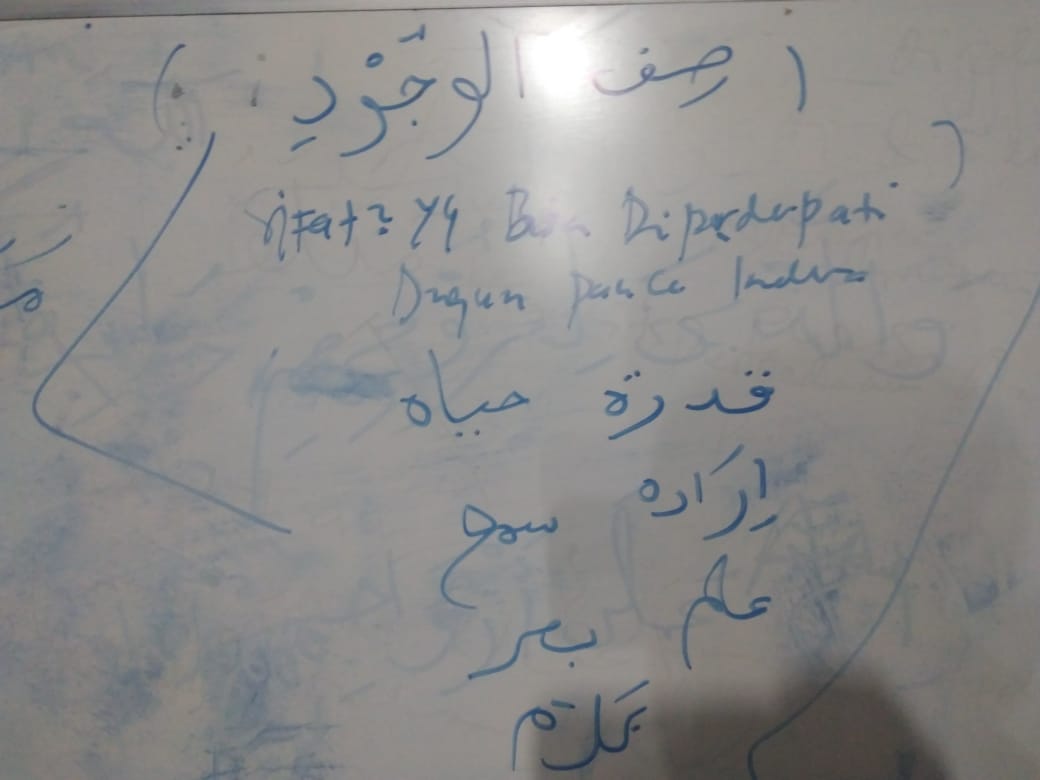 ( صف الوجُوْدِ )
sifat² yg Bisa Diperdapati
Dngan panca Indra
قدرة حياه
اِرَاده سمع
علم بصر
كلام